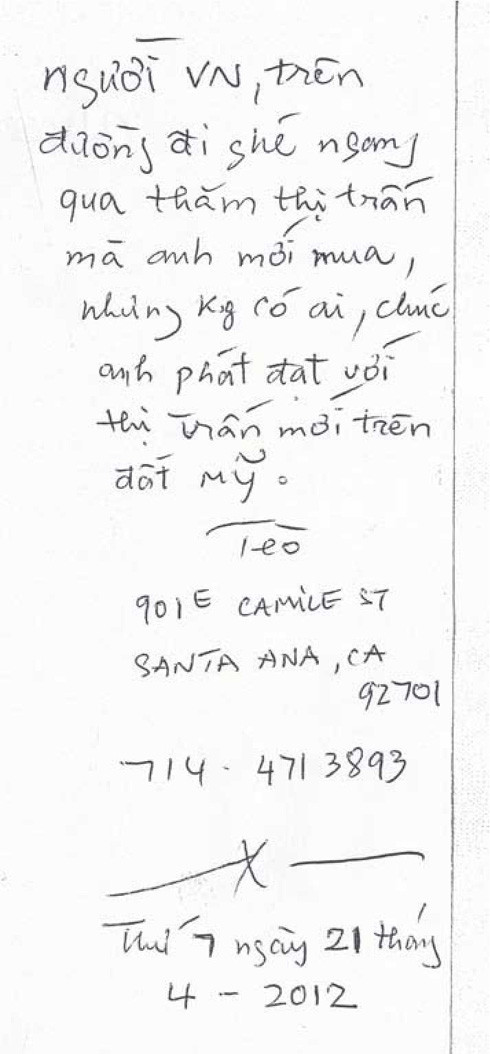 người VN, trên
đường đi ghé ngang
qua thăm thị trấn
mà anh mới mua,
nhưng kg có ai, chúc
anh phát đạt với
thị trấn mới trên
đất Mỹ.
Tèo
901 E CAMILE ST
SANTA ANA, CA
92701
714 - 471 3893
X
Thứ 7 ngày 21 tháng
4 - 2012